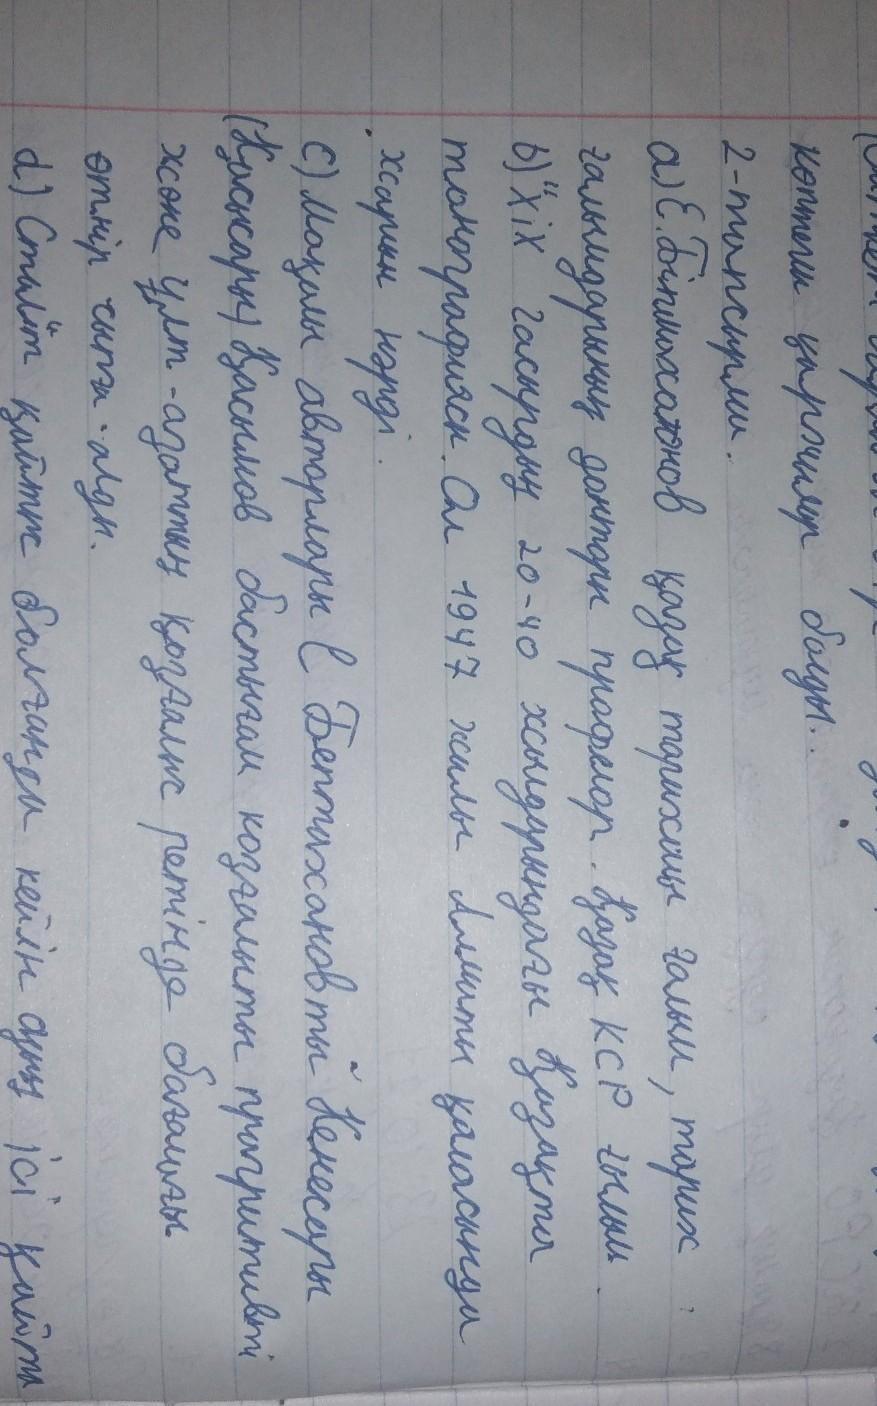 көптеген қаржылар болуы.
2-тапсырма.
а) Е.Бекмаханов қазақ тарихшы ғалым, тарих
ғалымдарының докторы професор. Қазақ КСР ғылым.
b) "XIX ғасырдың 20-40 жылдарындағы Қазақта
танографиясы. Ол 1947 жылы Алматы қаласында
жарық көрді.
c) Мақала авторлары Бекмахановты "Кенесары
(Қасқары) Қасымов бастыған козғалыты прогрипивті
және ұлт-азаттық қозғалыс ретінде бағалағы
өткір сынға алды.
d) Сталин қайтыс болғанды кейін оуны ісі қайта